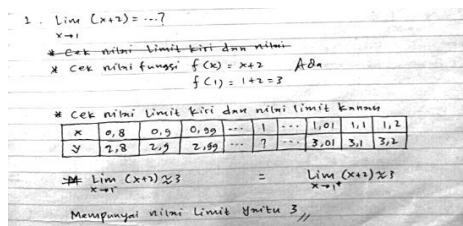 1. Lim (x+2) = ...?
x→1
* Cek nilai limit kiri dan nilai
* Cek nilai fungsi f(x) = x+2 Ada
f(1) = 1+2 = 3
* Cek nilai limit kiri dan nilai limit kanan
x 0,8 0,9 0,99 ... 1 ... 1,01 1,1 1,2
y 2,8 2,9 2,99 ... ? ... 3,01 3,1 3,2
Lim (x+2) ≈ 3 = Lim (x+2) ≈ 3
x→1⁻ x→1⁺
Mempunyai nilai limit yaitu 3 //